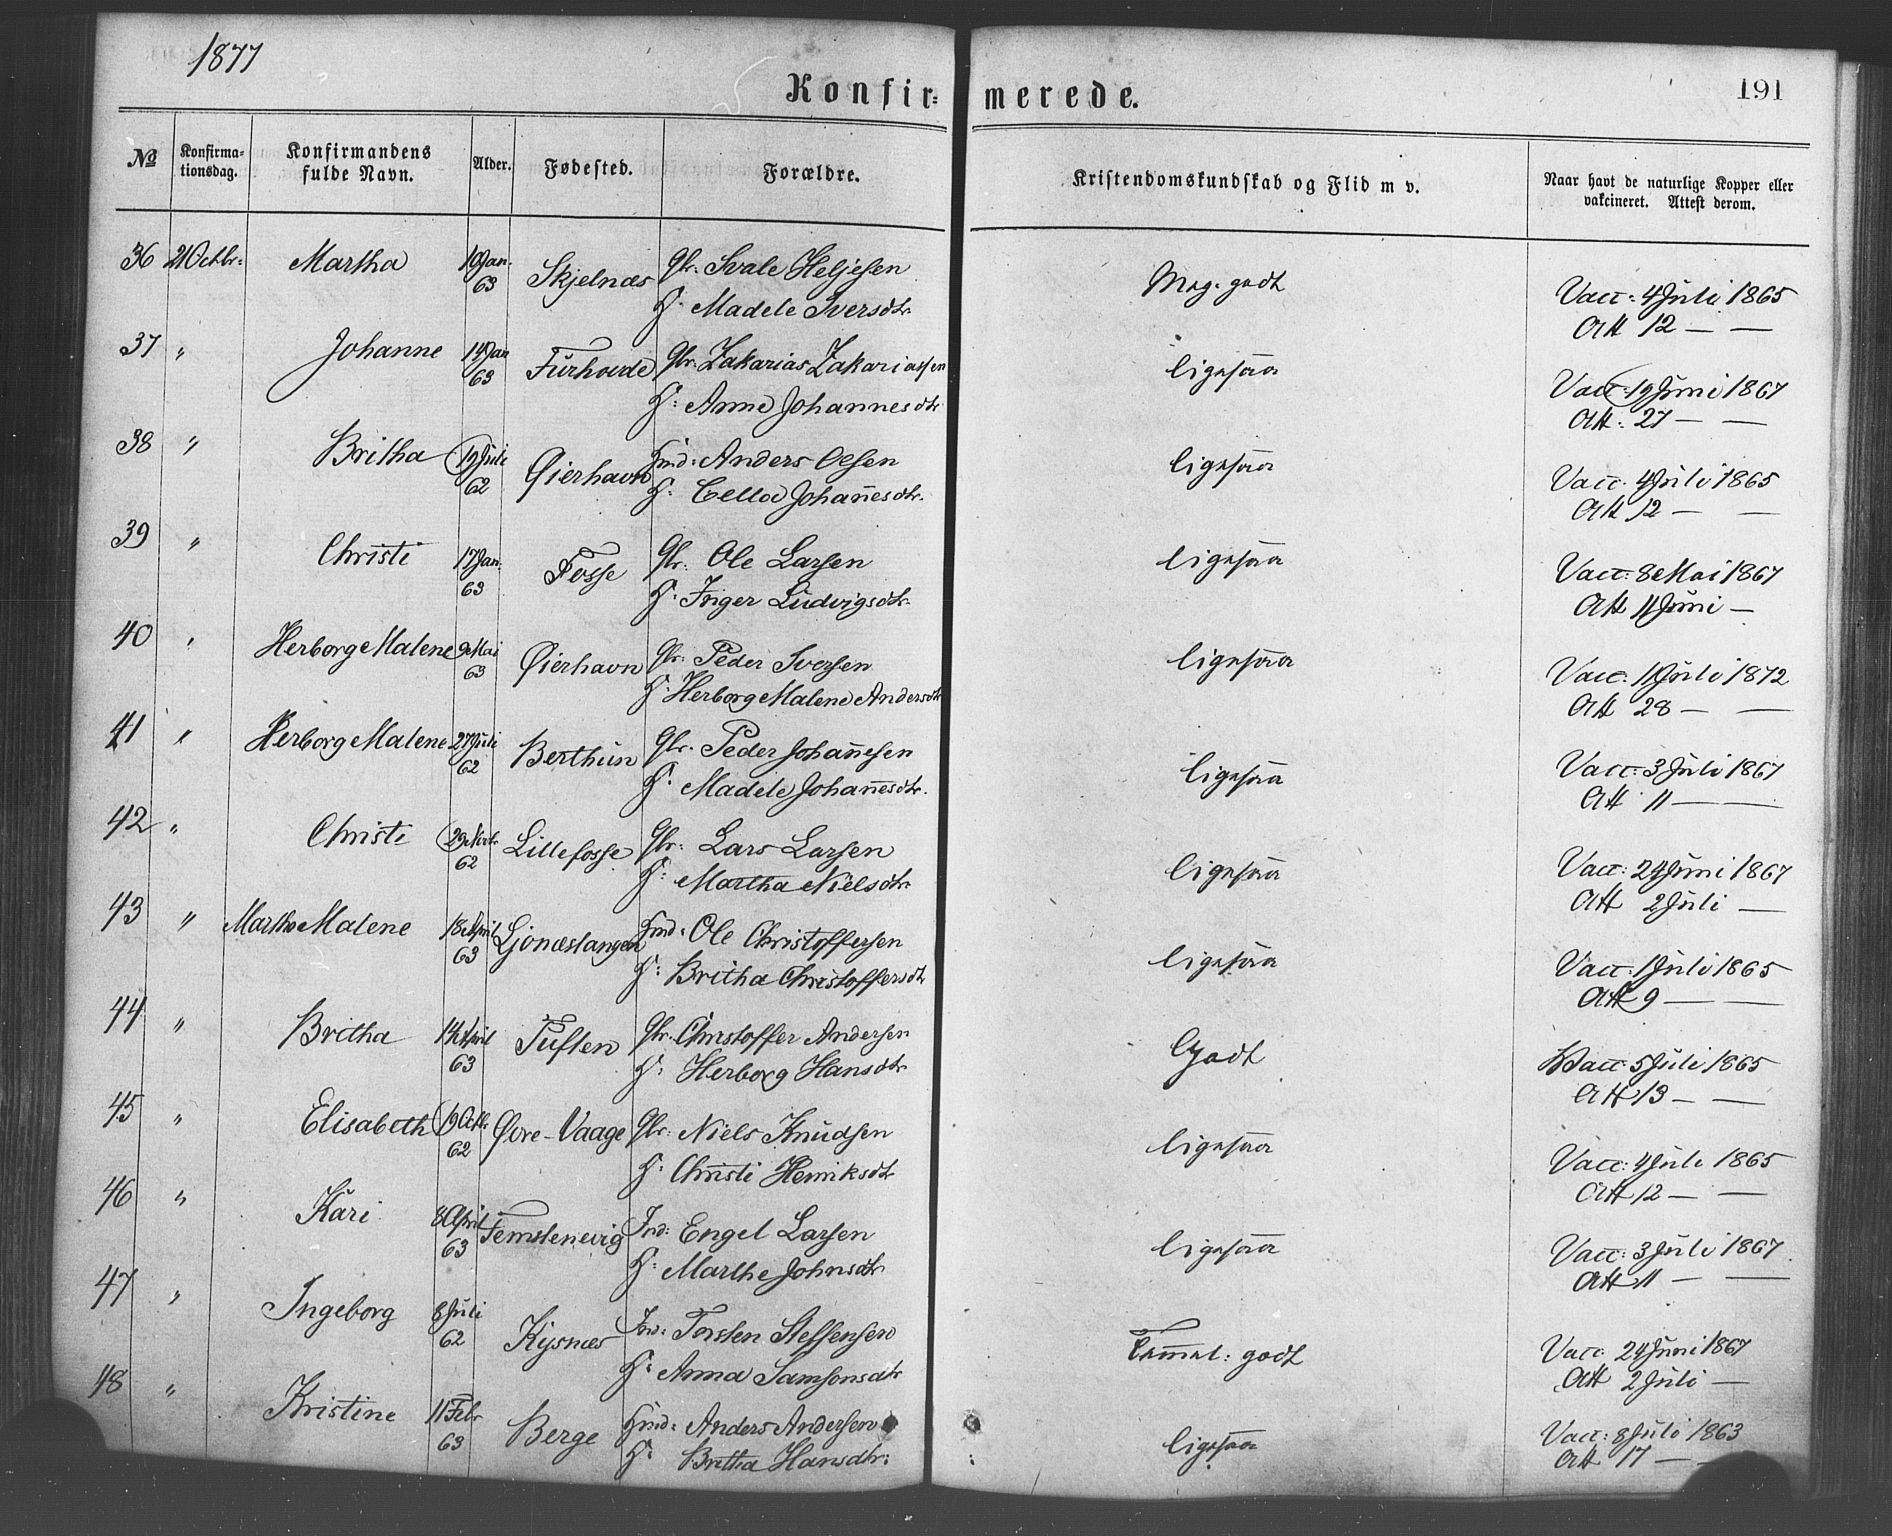 1877
Konfir- merede.
191
№ Konfirma- Konfirmandens Alder. Fødested. Forældre. Kristendomskundskab og Flid m v. Naar havt de naturlige Kopper eller
tionsdag. fulde Navn. vakcineret. Attest derom.
36 21 Octbr: Martha 10 Jan. Skjelnæs Gbr. Svale Heljesen Mag. godt Vacc: 4 Juli 1865
63 H. Madele Iversdtr. Att 12 — —
37 " Johanne 14 Jan Furhovde Gbr. Zakarias Zakariassen ligesaa Vacc. 19 Juni 1867
63 H: Anna Johannesdtr Att: 27 — —
38 " Britha 19 Juli Øierhavn Hmd: Anders Olsen ligesaa Vacc. 4 Juli 1865
62 H. Johanesdtr. Att 12 — —
39 " Christi 17 Jan. Fosse Gbr. Ole Larsen ligesaa Vacc: 8 Mai 1867
63 H. Inger Ludvigsdtr. Att 11 Juni —
40 " Herborg Malene 9 Mai Øierhavn Gbr: Peder Iversen ligesaa Vacc. 11 Juli 1872
63 H. Herborg Malene Andersdtr Att 28 — —
41 " Herborg Malene 27 Juli Berthun Gbr. Peder Johanesen ligesaa Vacc: 3 Juli 1867
62 H. Madele Johanesdtr. Att 11 — —
42 " Christi 29 Novb. Lillefosse Gbr: Lars Larsen ligesaa Vacc: 24 Juni 1867
62 H: Martha Nielsdtr Att 2 Juli —
43 " Martha Malene 18 April Ljonæstangen Hmd: Ole Christoffersen ligesaa Vacc: 1 Juli 1865
63 H: Britha Christoffersdtr Att 9 — —
44 " Britha 14 April Tuften Gbr. Christoffer Andersen Godt Vacc: 5 Juli 1865
63 H: Herborg Hansdtr Att 13 — —
45 " Elisabeth 19 Octb. Øvre-Vaage Gbr: Niels Knudsen ligesaa Vacc: 4 Juli 1865
62 H. Christi Henriksdtr Att 12 — —
46 " Kari 8 April Femstenevig Ind: Engel Larsen ligesaa Vacc: 3 Juli 1867
63 H. Marthe Johnsdtr Att 11 — —
47 " Ingeborg 8 Juli Kysnæs Torsten Steffensen Temmel: godt Vacc. 24 Juni 1867
62 H: Anna Samsonsdtr Att 2 Juli —
48 " Kristine 11 Febr Berge Hmd: Anders Andersen ligesaa Vacc: 8 Juli 1863
63 H: Britha Hansdtr: Att 17 — —